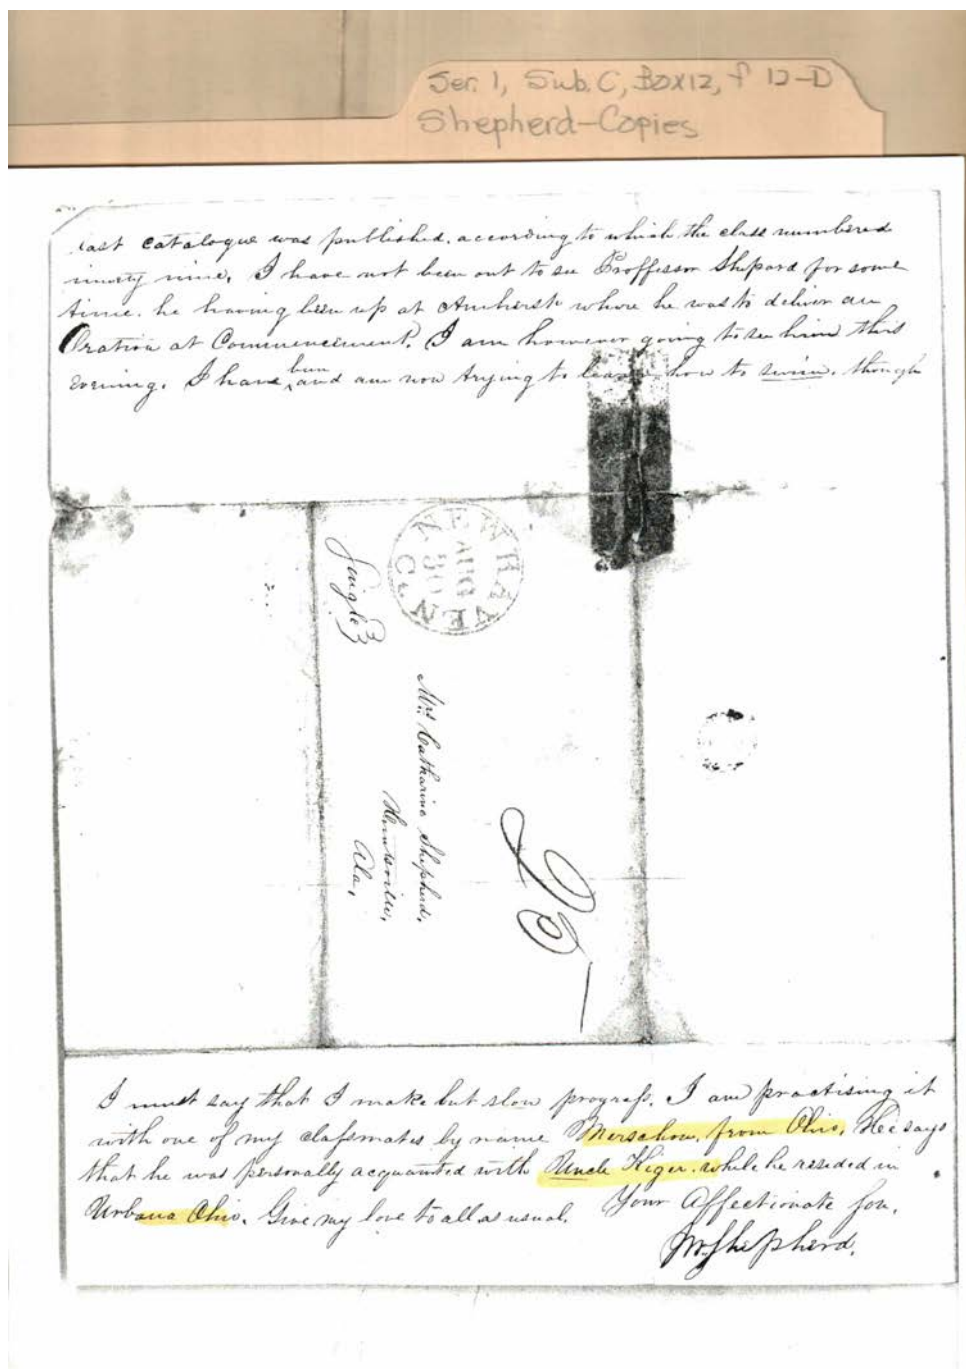 Ser. 1, Sub. C, Box 12, f 12-D
Shepherd-Copies
last catalogue was published, according to which the class numbered
ninety nine. I have not been out to see Proffessor Shepard for some
time. he having been up at Amherst where he was to deliver an
Oration at Commencement. I am however going to see him this
evening. I have been and am now trying to learn how to swim. though
NEW HAVEN
AUG
30
Ct.
Single
Mrs Catharine Shepherd,
Huntsville,
Ala.
25
I must say that I make but slow progress. I am practising it
with one of my classmates by name Merschow, from Ohio. He says
that he was personally acquanted with Uncle Kiger. while he resided in
Urbana Ohio. Give my love to all as usual. Your Affectionate Son,
Shepherd.